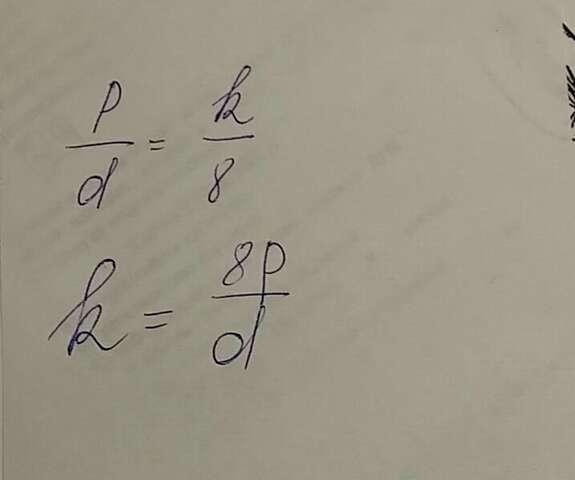 P/d = k/8
k = 8P/d